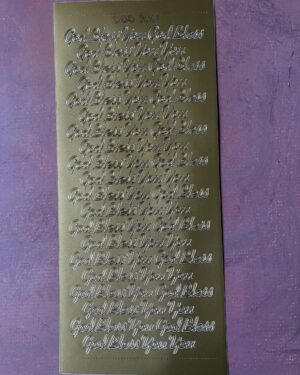 God Bless You God Bless
God Bless You You
God Bless You God Bless
God Bless You You
God Bless You God Bless
God Bless You You
God Bless You God Bless
God Bless You You
God Bless You God Bless
God Bless You You
God Bless You God Bless
God Bless You You
God Bless You God Bless
God Bless You You
God Bless You God Bless
God Bless You You
God Bless You God Bless
God Bless You You
God Bless You God Bless
God Bless You You